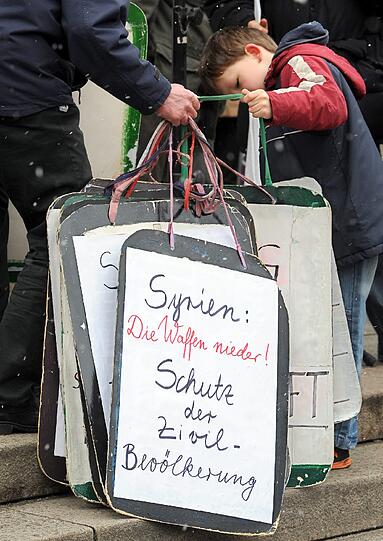 Syrien:
Die Waffen nieder!
Schutz
der
Zivil-
Bevölkerung